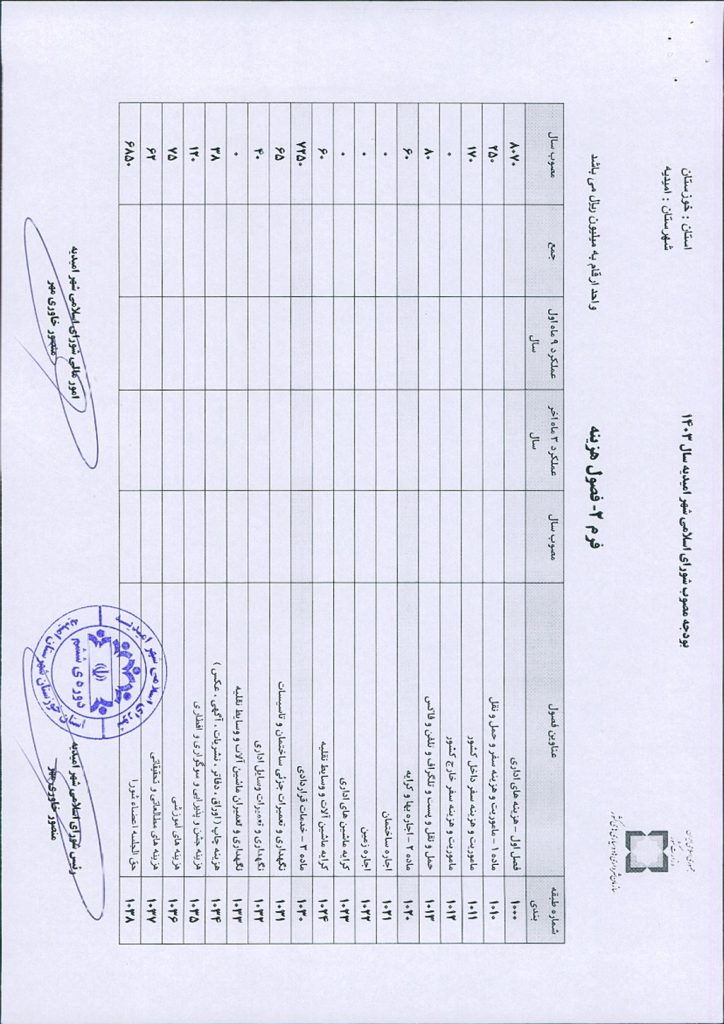 استان : خوزستان
شهرستان : امیدیه
بودجه مصوب شورای اسلامی شهر امیدیه سال ۱۴۰۳
واحد ارقام به میلیون ریال می باشد
فرم ۲- فصول هزینه
شماره طبقه بندی عناوین فصول مصوب سال عملکرد ۳ ماه اخر سال عملکرد ۹ ماه اول سال جمع مصوب سال
۱۰۰۰ فصل اول – هزینه های اداری ۸۰۷۰
۱۰۱۰ ماده ۱ – ماموریت و هزینه سفر و حمل و نقل ۲۵۰
۱۰۱۱ ماموریت و هزینه سفر داخل کشور ۱۷۰
۱۰۱۲ ماموریت و هزینه سفر خارج کشور ۰
۱۰۱۳ حمل و نقل و پست و تلگراف و تلفن و فاکس ۸۰
۱۰۲۰ ماده ۲ – اجاره بها و کرایه ۶۰
۱۰۲۱ اجاره ساختمان ۰
۱۰۲۲ اجاره زمین ۰
۱۰۲۳ کرایه ماشین های اداری ۰
۱۰۲۴ کرایه ماشین آلات و وسایط نقلیه ۶۰
۱۰۳۰ ماده ۳ – خدمات قراردادی ۷۲۵۰
۱۰۳۱ نگهداری و تعمیرات جزئی ساختمان و تاسیسات ۶۵
۱۰۳۲ نگهداری و تعمیرات وسایل اداری ۴۰
۱۰۳۳ نگهداری و تعمیران ماشین آلات و وسایط نقلیه ۰
۱۰۳۴ هزینه چاپ ( اوراق ، دفاتر ، نشریات ، آگهی ، عکس ) ۳۸
۱۰۳۵ هزینه جشن و پذیرایی و سوگواری و افطاری ۱۲۰
۱۰۳۶ هزینه های اموزشی ۷۵
۱۰۳۷ هزینه های مطالعاتی و تحقیقاتی ۶۲
۱۰۳۸ حق الجلسه اعضاء شورا ۶۸۵۰
رئیس شورای اسلامی شهر امیدیه
منصور خاوری مهر
امور مالی شورای اسلامی شهر امیدیه
منصور خاوری مهر
شورای اسلامی شهر امیدیه
دوره ی ششم
استان خوزستان شهرستان امیدیه